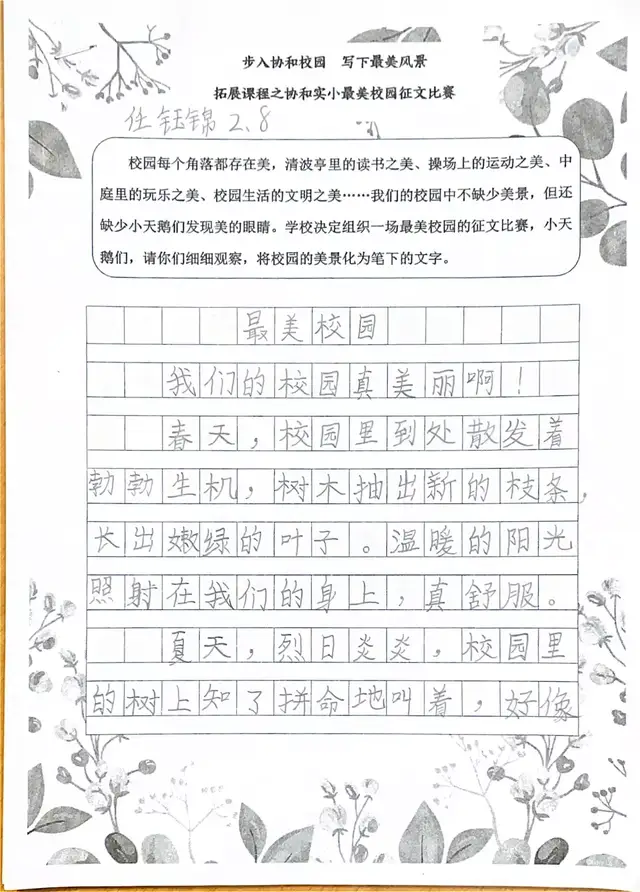 步入协和校园 写下最美风景
拓展课程之协和实小最美校园征文比赛
任钰锦 2.8
校园每个角落都存在美，清波亭里的读书之美、操场上的运动之美、中
庭里的玩乐之美、校园生活的文明之美……我们的校园中不缺少美景，但还
缺少小天鹅们发现美的眼睛。学校决定组织一场最美校园的征文比赛，小天
鹅们，请你们细细观察，将校园的美景化为笔下的文字。
最美校园
我们的校园真美丽啊！
春天，校园里到处散发着
勃勃生机，树木抽出新的枝条，
长出嫩绿的叶子。温暖的阳光
照射在我们的身上，真舒服。
夏天，烈日炎炎，校园里
的树上知了拼命地叫着，好像